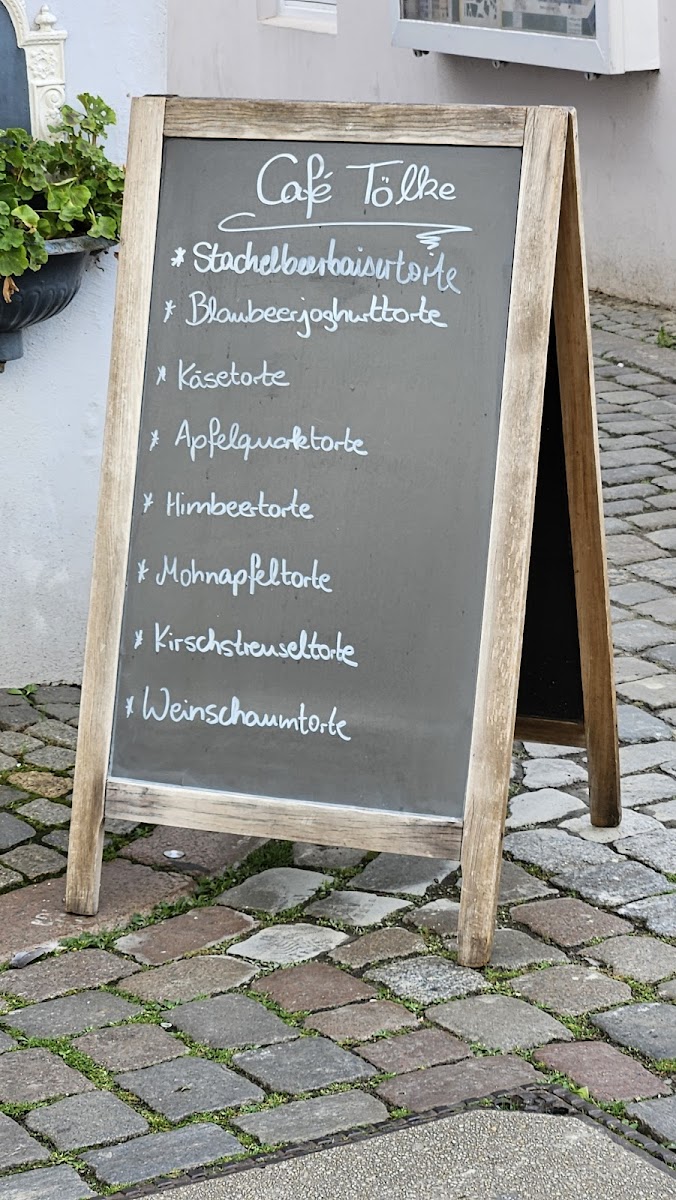 Café Tölke
* Stachelbeerbaisertorte
* Blaubeerjoghurttorte
* Käsetorte
* Apfelquarktorte
* Himbeertorte
* Mohnapfeltorte
* Kirschstreuseltorte
* Weinschaumtorte